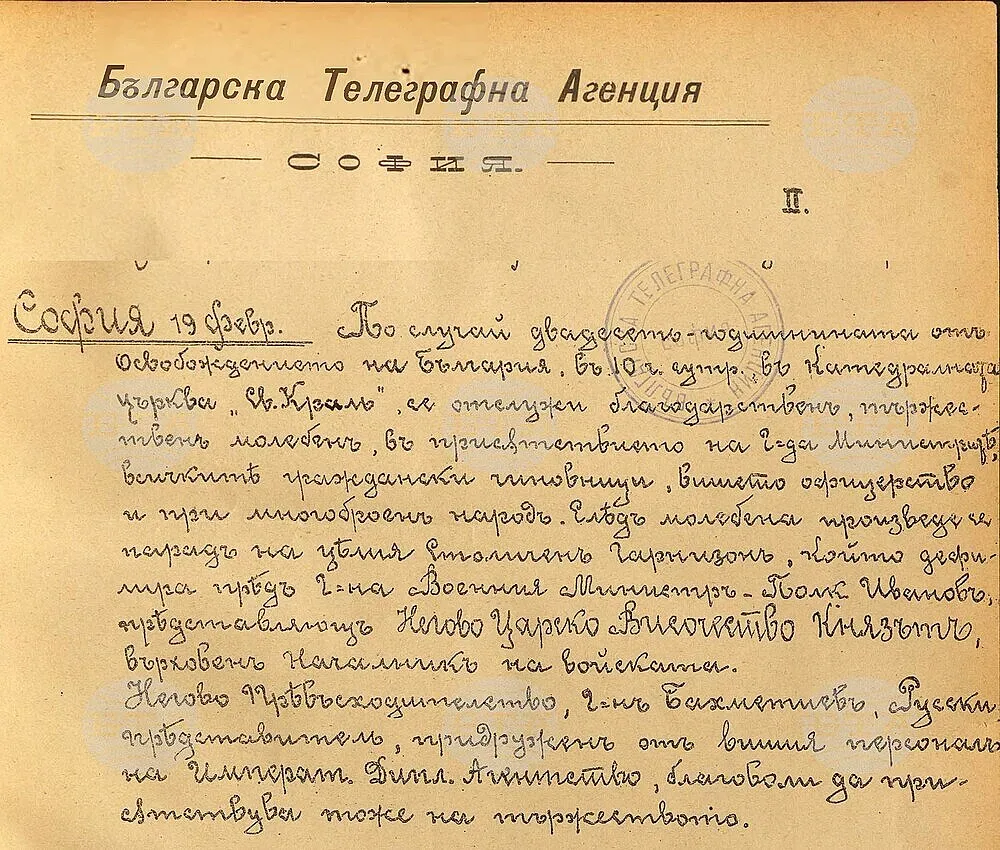 Българска Телеграфна Агенция
СОФИЯ.
II.
ТЕЛЕГРАФНА
София 19 Февр. По случай двадесеть-годишнината отъ
Освобождението на България, въ 10 ч. сутр. въ Катедралната
църква „Св. Краль“, се отслужи благодарственъ, тържес-
твенъ молебенъ, въ присѫтствието на Г-да Министритѣ,
всичкитѣ граждански чиновници, висшето офицерство
и при многоброенъ народъ. Слѣдъ молебена произведе се
парадъ на цѣлия Столиченъ Гарнизонъ, който дефи-
лира прѣдъ Г-на Военния Министръ - Полк. Ивановъ,
прѣдставляющъ Негово Царско Височество Князътъ,
върховенъ Началникъ на войската.
Негово Прѣвъсходителство, Г-нъ Бахметиевъ, Русски
прѣдставитель, придруженъ отъ висшия персоналъ
на Императ. Дипл. Агентство, благоволи да при-
сѫтствува тоже на тържеството.